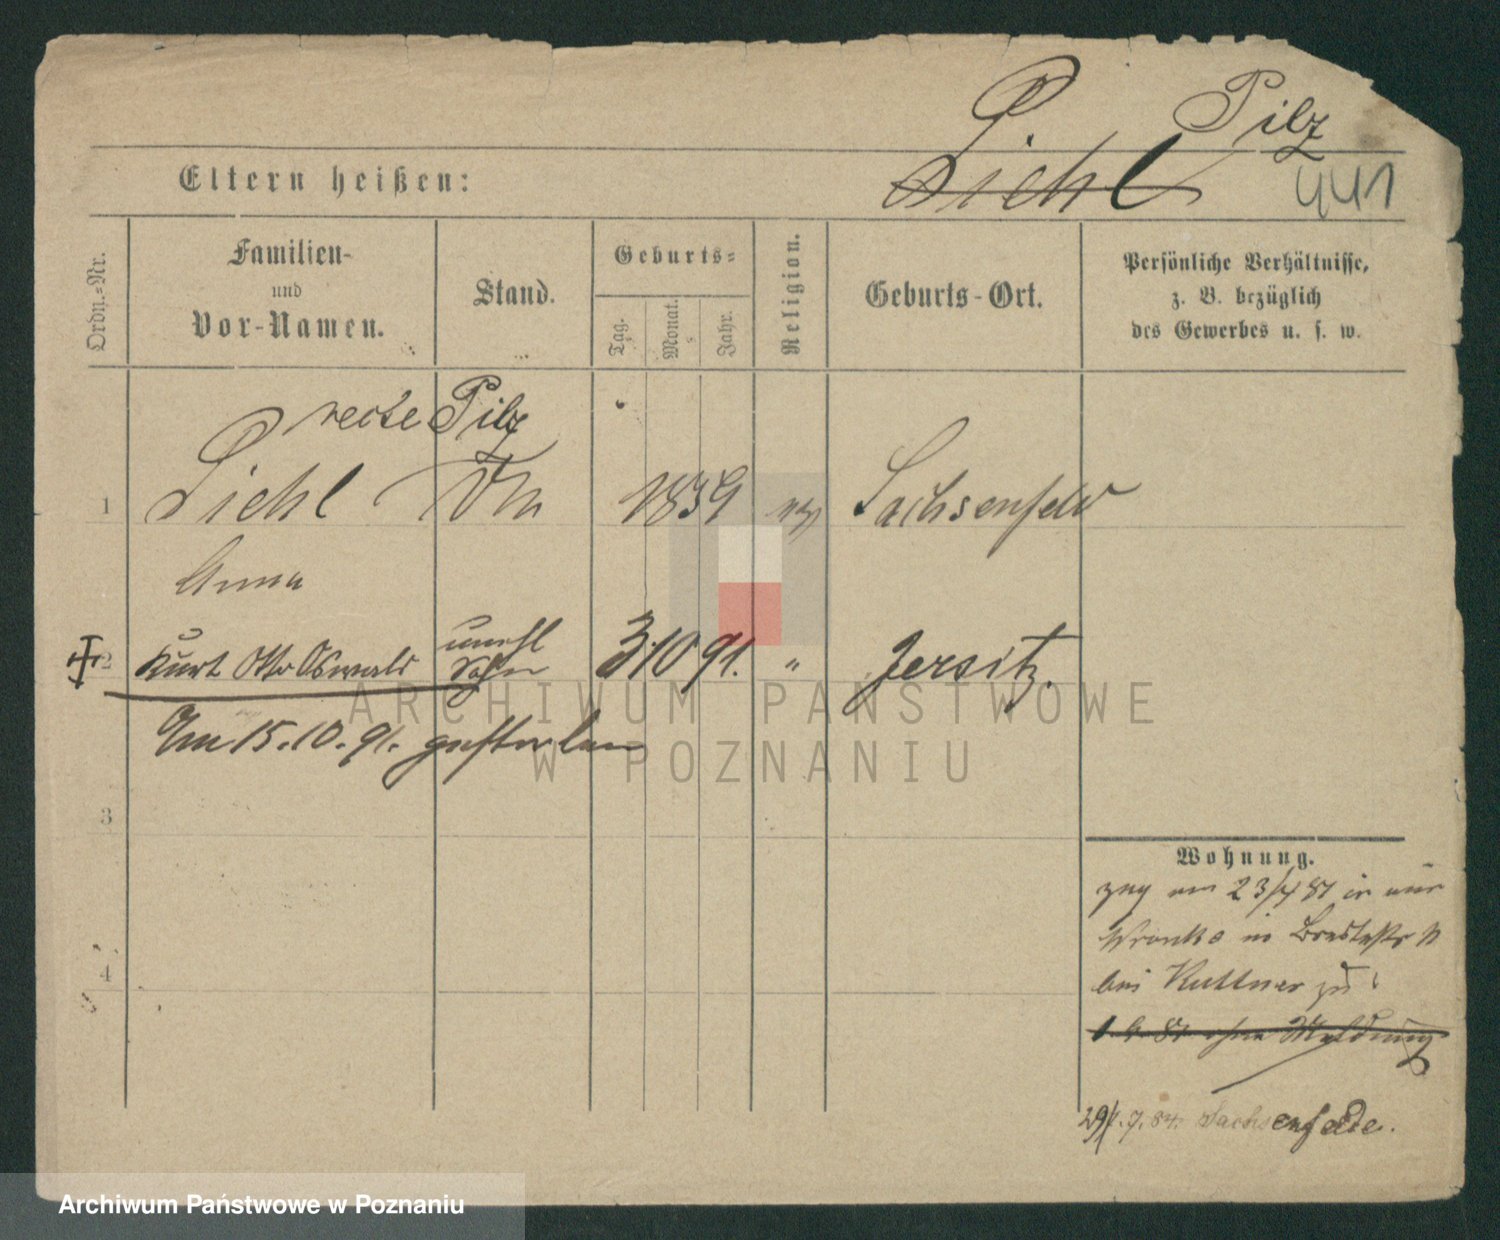 Pilz
Siehl
441
Eltern heißen:
Ordn.-Nr.
Familien-
und
Vor-Namen.
Stand.
Geburts-
Tag.
Monat.
Jahr.
Religion.
Geburts-Ort.
Persönliche Verhältnisse,
z. B. bezüglich
des Gewerbes u. s. w.
recte Pilz
1 Siehl 1839 Sachsenfeld
Anna
2 Kurt Otto Oswald unehl Sohn 3 10 91. " Jersitz.
Am 15.10.91. gestorben
3
4
Wohnung.
zug am 23/4 81
Wronke in
bei Kuttner zu
ohne Meldung
29/.7.84. Sachsenfelde.
ARCHIWUM PAŃSTWOWE
W POZNANIU
Archiwum Państwowe w Poznaniu